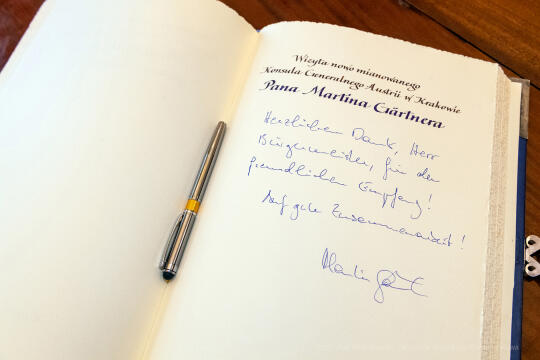 Wizyta nowo mianowanego
Konsula Generalnego Austrii w Krakowie
Pana Martina Gärtnera
Herzlichen Dank, Herr
Bürgermeister, für den
freundlichen Empfang!
Auf gute Zusammenarbeit!
Martin Gärtner